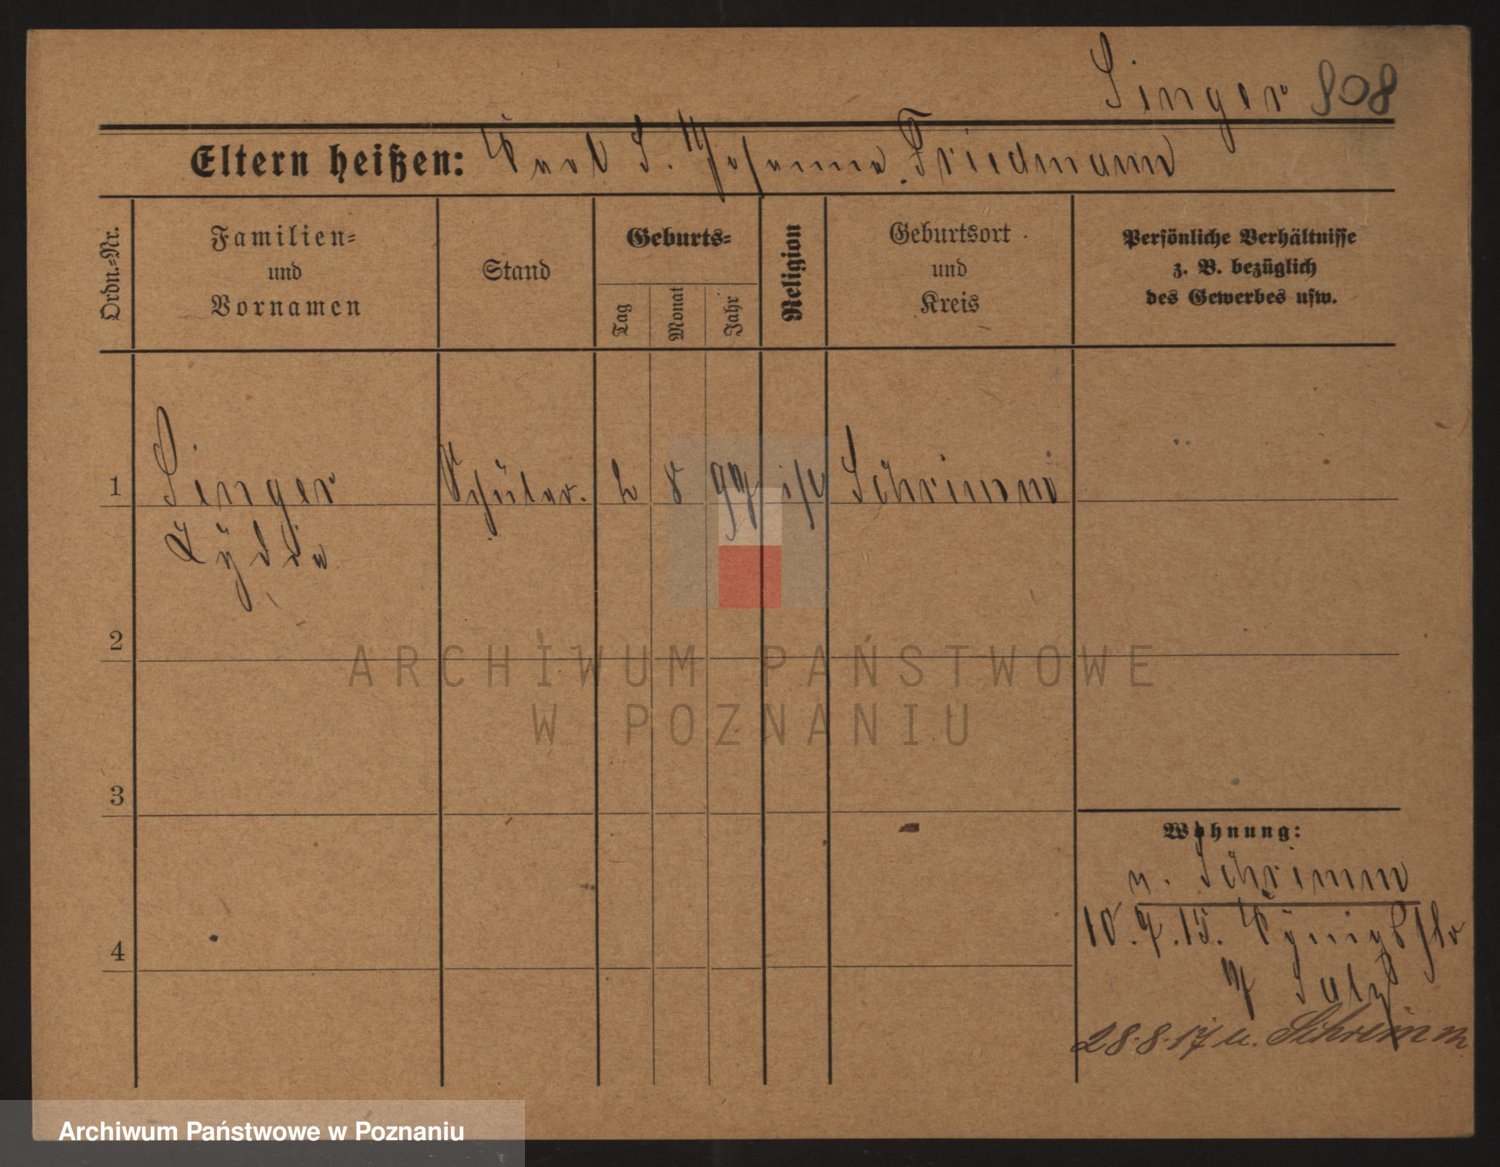 Singer 808
Eltern heißen: Karl S. Johanna Friedmann
Ordn.-Nr.
Familien-
und
Vornamen
Stand
Geburts-
Tag
Monat
Jahr
Religion
Geburtsort
und
Kreis
Persönliche Verhältnisse
z. B. bezüglich
des Gewerbes usw.
1 Singer Schüler. 2 8 99 Schrimm
2
3
4
Wohnung:
n. Schrimm
10. 15. Königspl
28.8.17 u. Schrimm
ARCHIWUM PAŃSTWOWE
W POZNANIU
Archiwum Państwowe w Poznaniu